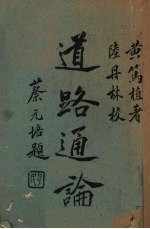 黄篤植著
陸丹林校
道路通論
蔡元培題